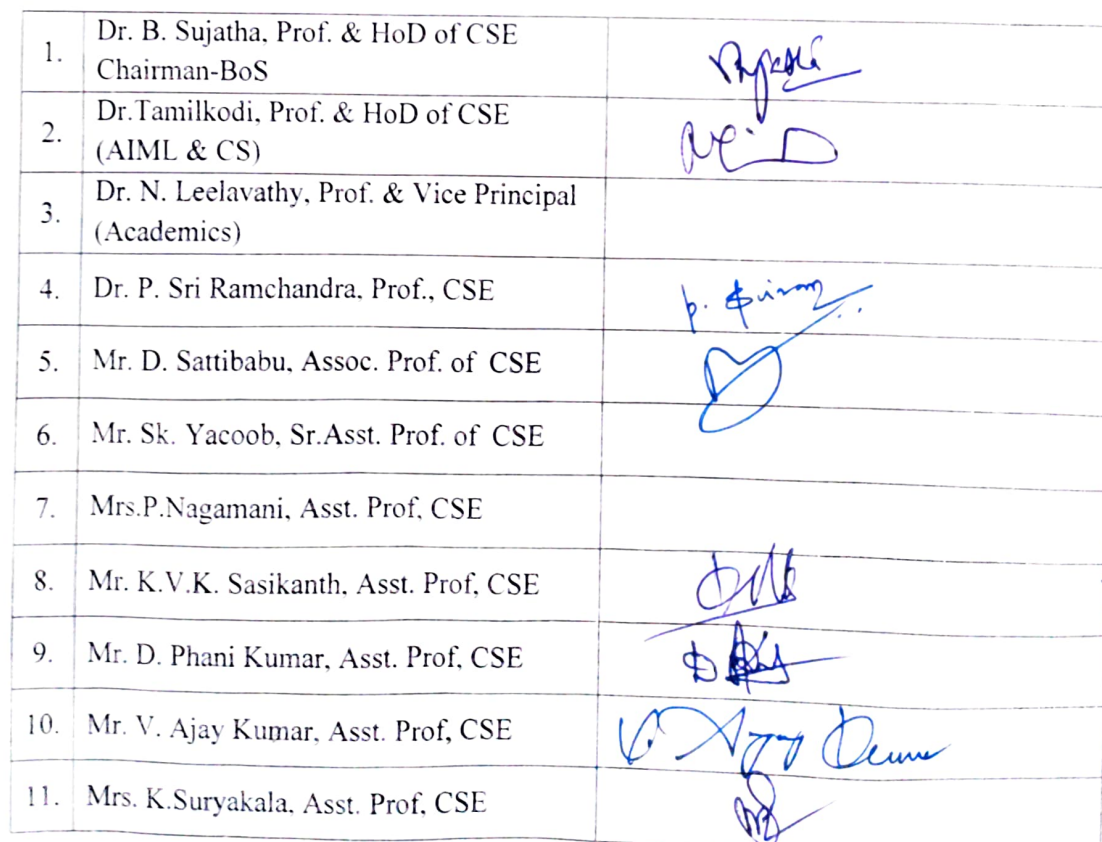 1. Dr. B. Sujatha, Prof. & HoD of CSE
Chairman-BoS
2. Dr.Tamilkodi, Prof. & HoD of CSE
(AIML & CS)
3. Dr. N. Leelavathy, Prof. & Vice Principal
(Academics)
4. Dr. P. Sri Ramchandra, Prof., CSE
5. Mr. D. Sattibabu, Assoc. Prof. of CSE
6. Mr. Sk. Yacoob, Sr.Asst. Prof. of CSE
7. Mrs.P.Nagamani, Asst. Prof, CSE
8. Mr. K.V.K. Sasikanth, Asst. Prof, CSE
9. Mr. D. Phani Kumar, Asst. Prof, CSE
10. Mr. V. Ajay Kumar, Asst. Prof, CSE
11. Mrs. K.Suryakala, Asst. Prof, CSE